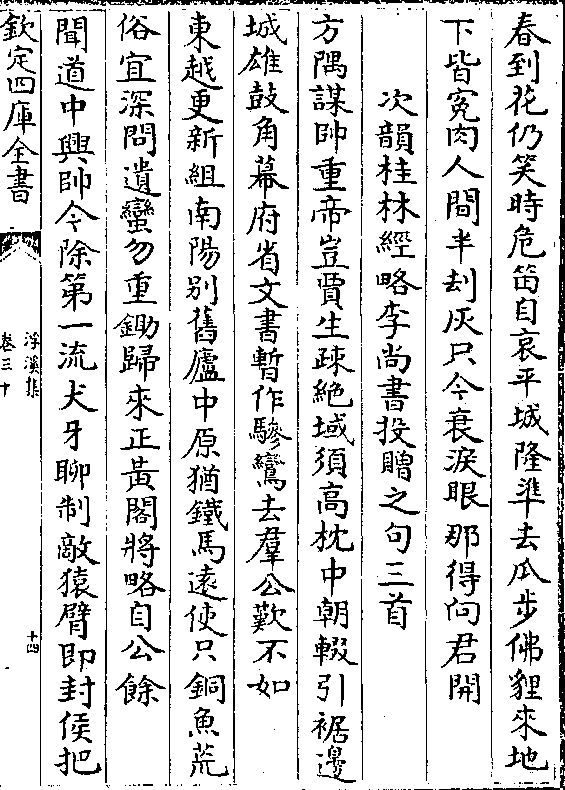 春到花仍笑時危笛自哀平城隆準去瓜步佛貍來地
下皆寃肉人間半刦灰只今衰淚眼那得向君開
次韻桂林經略李尚書投贈之句三首
方隅謀帥重帝豈賈生疎絶域須高枕中朝輟引裾邊
城雄鼓角幕府省文書暫作驂鸞去羣公歎不如
東越更新組南陽别舊廬中原猶鐵馬遠使只銅魚荒
俗宜深問遺蠻勿重鋤歸來正黃閣將略自公餘
聞道中興帥今除第一流犬牙聊制敵猿臂即封侯把
欽定四庫全書
浮溪集
卷三十
十四